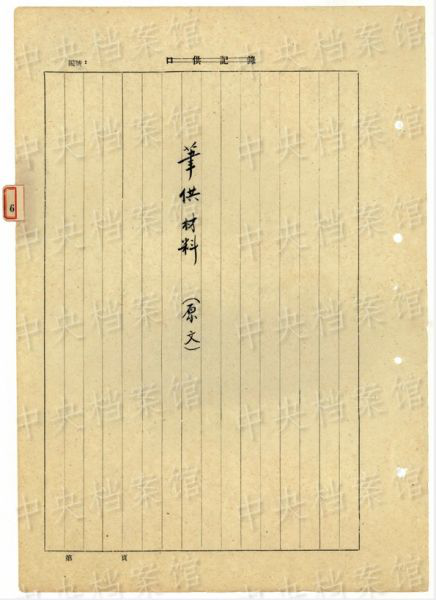 編號：
口供記錄
筆供材料（原文）
6
第 頁
中央档案馆